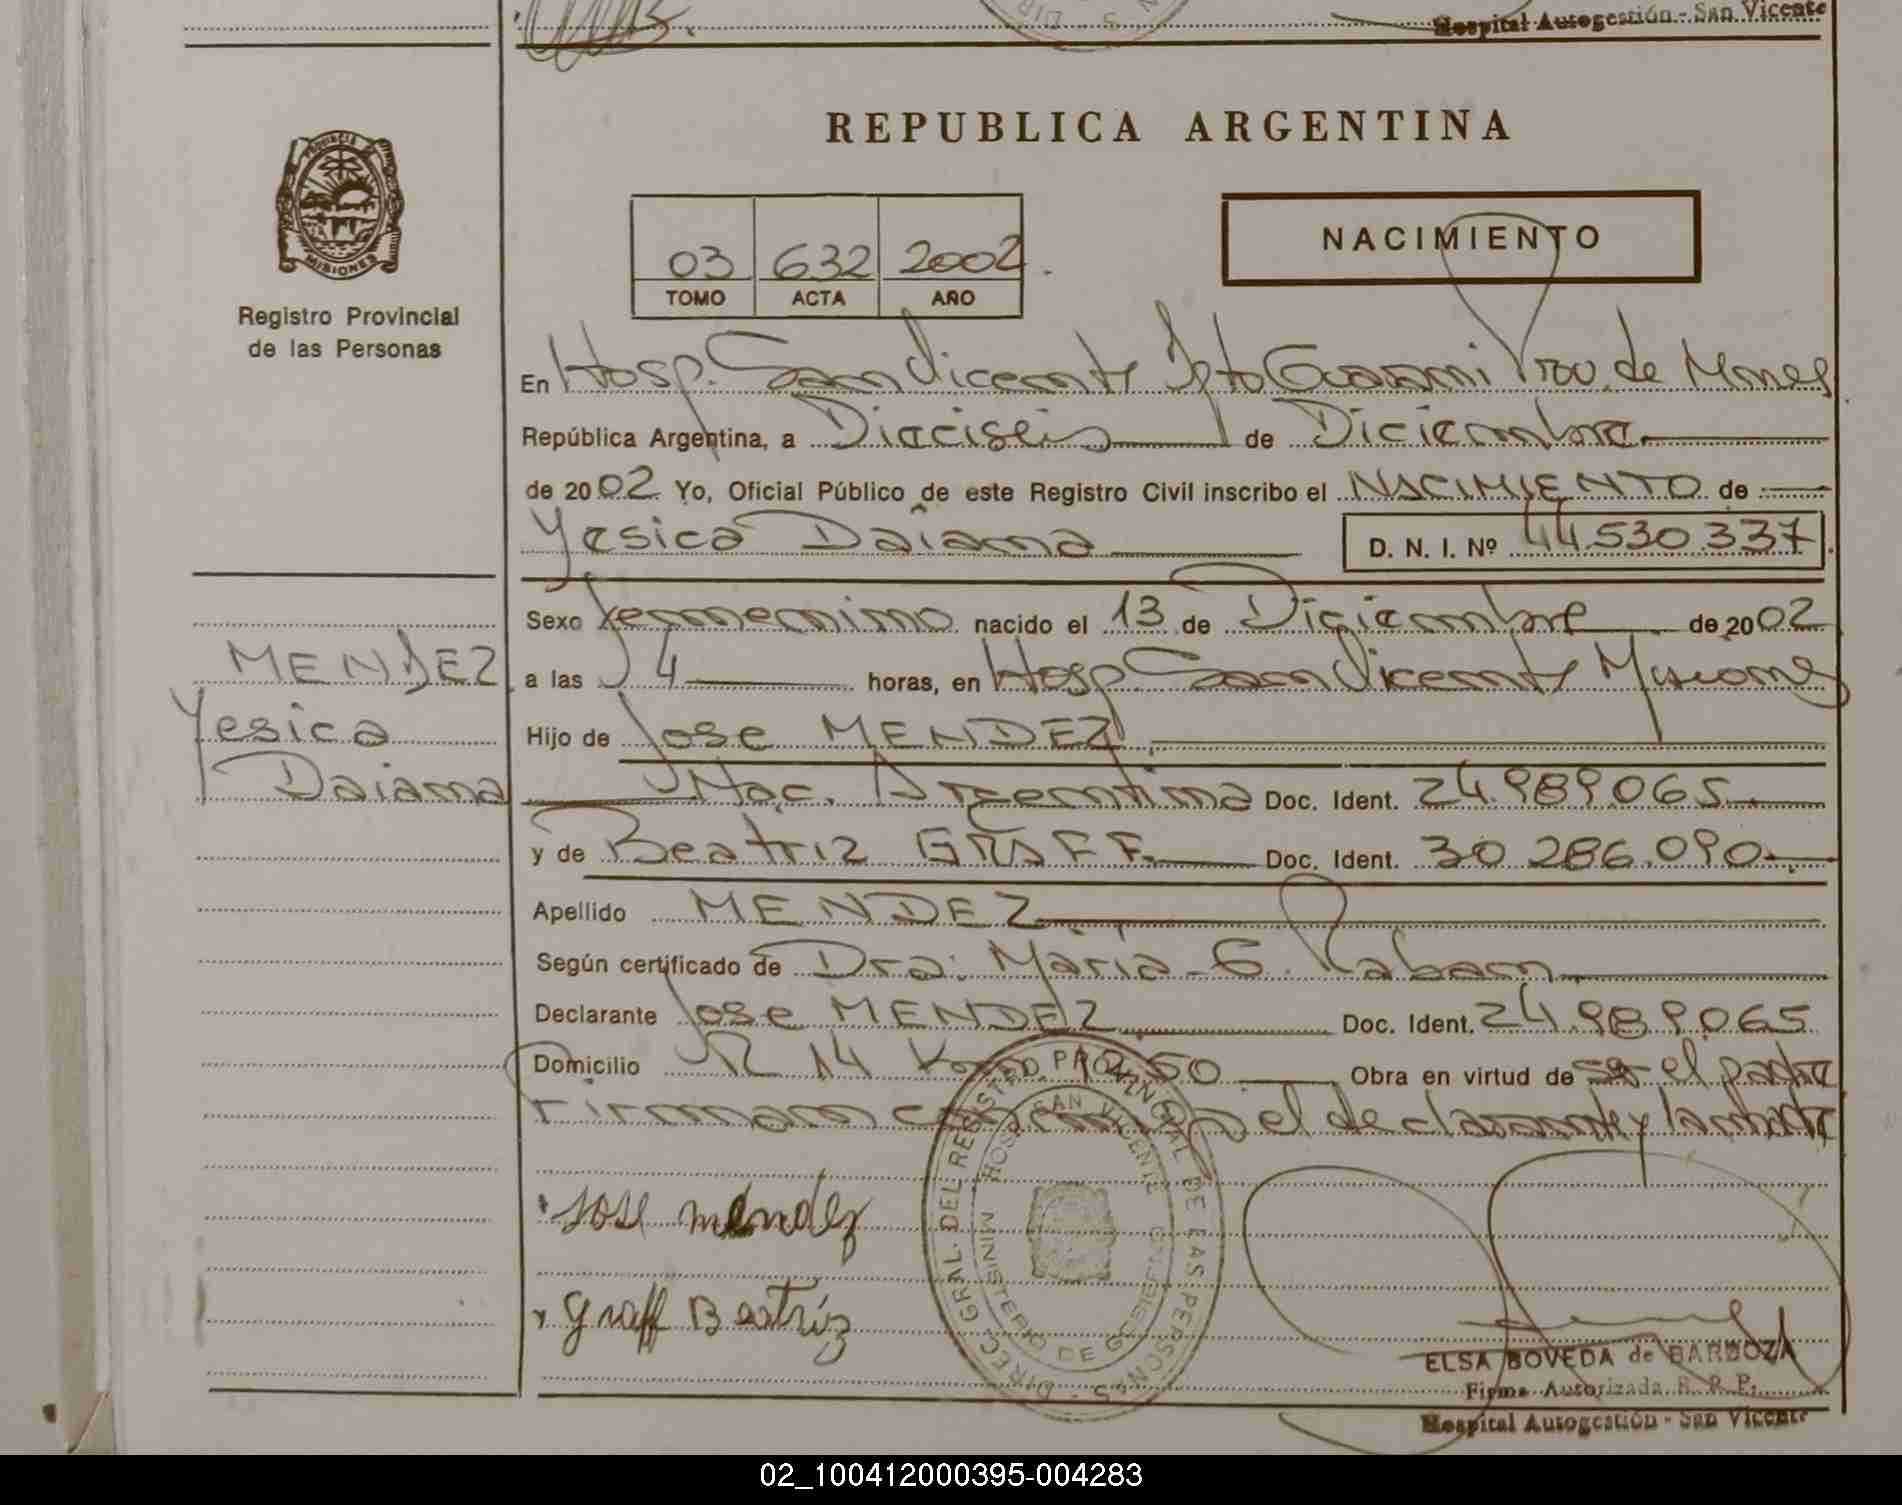 Hospital Autogestión - San Vicente
REPUBLICA ARGENTINA
PROVINCIA
MISIONES
Registro Provincial
de las Personas
03 632 2002
TOMO ACTA AÑO
NACIMIENTO
En Hosp. San Vicente Dpto Guarani Prov. de Mnes
República Argentina, a Dieciseis de Diciembre
de 2002 Yo, Oficial Público de este Registro Civil inscribo el NACIMIENTO de
Yesica Daiana D. N. I. Nº 44.530.337
Sexo femenino nacido el 13 de Diciembre de 2002
a las 4 horas, en Hosp San Vicente Misiones
MENDEZ
Yesica
Daiana
Hijo de Jose MENDEZ
Nac. Argentina Doc. Ident. 24.989.065
y de Beatriz GRAFF Doc. Ident. 30 286.090
Apellido MENDEZ
Según certificado de Dra: Maria G. Raban
Declarante Jose MENDEZ Doc. Ident. 24.989.065
Domicilio R 14 Km 1260 Obra en virtud de ser el padre
Firman conmigo el declarante y la madre
Jose mendez
Graff Beatríz
DIREC. GRAL. DEL REGISTRO PROVINCIAL DE LAS PERSONAS
HOSP. SAN VICENTE
MINISTERIO DE GOBIERNO
ELSA BOVEDA de BARBOZA
Firma Autorizada R. P. P.
Hospital Autogestión - San Vicente
02_100412000395-004283